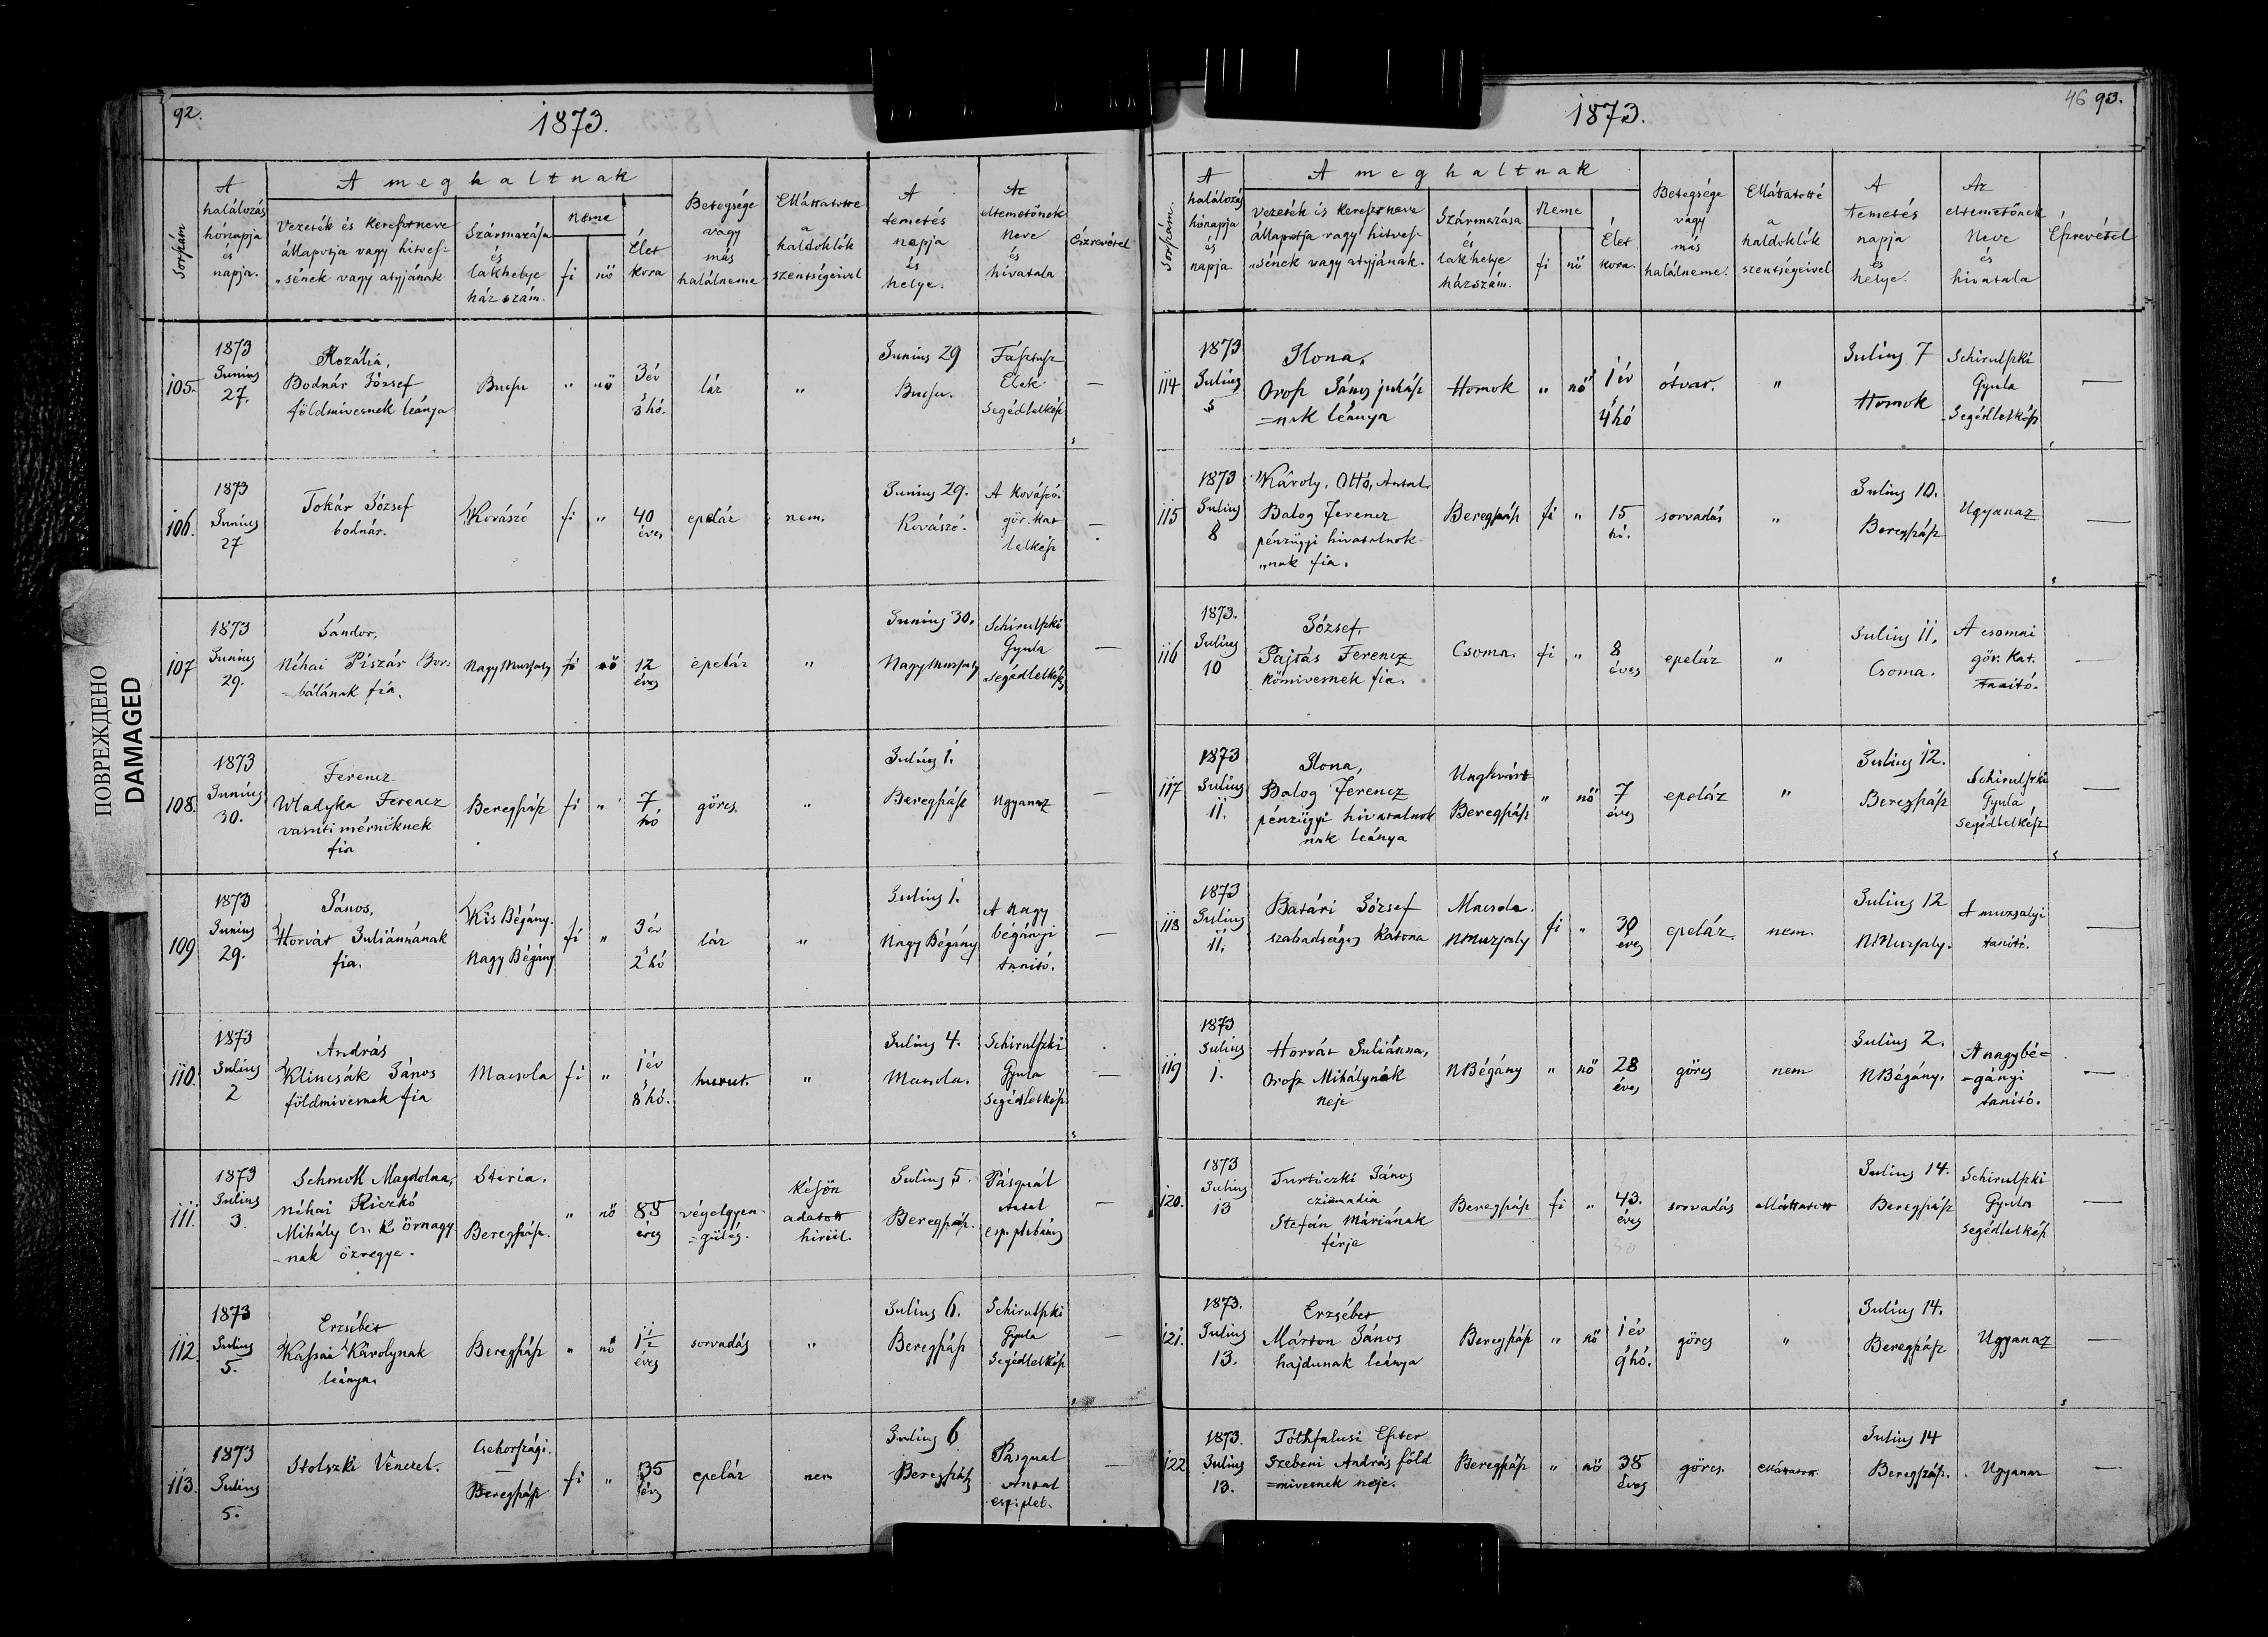 92.
1873.
Sorszám
A halálozás hónapja és napja.
A meghaltnak
Vezeték és keresztneve állapotja vagy hitvesz-
„sének vagy atyjának
Származása és lakhelye ház szám.
neme
fi
nő
Élet kora
Betegsége vagy más halálneme
Ellátattatott-e a haldoklók szentségeivel
A temetés napja és helye.
Az eltemetőnek neve és hivatala
Észrevétel
105.
1873 Junius 27.
Rozália,
Bodnár József
földmivesnek leánya
Bucsu
„
nő
3 év 3 hó.
láz
„
Junius 29
Bucsu.
Elek
Segédlelkész
—
106.
1873 Junius 27
Tokár József
bodnár.
Kovászó
fi
„
40 éves
epeláz
nem.
Junius 29.
Kovászó.
A kovászói
gör. kat
lelkész
—
107
1873 Junius 29.
Sándor,
Néhai Piszár Bor-
=bálának fia.
Nagy Muzsaly
fi
nő
12 éves
epeláz
„
Junius 30.
Nagy Muzsaly
Schirulszki
Gyula
Segédlelkész
—
108.
1873 Junius 30.
Ferencz
Wladyka Ferencz
vasuti mérnöknek
fia
Beregszász
fi
„
7 hó
görcs.
„
Julius 1.
Beregszász
Ugyanaz
—
109
1873 Junius 29.
János,
Horvát Juliánnának
fia.
Kis Bégány.
Nagy Bégány
fi
„
3 év 2 hó
láz
„
Julius 1.
Nagy Bégány
A nagy
bégányi
tanitó.
—
110.
1873 Julius 2
András
Klincsák János
földmivesnek fia
Macsola
fi
„
1 év 8 hó.
hurut.
„
Julius 4.
Macsola.
Schirulszki
Gyula
Segédlelkész
—
111.
1873 Julius 3.
Schmoll Magdolna,
néhai Riczkó
Mihály cs. k. őrnagy
-nak özvegye.
Stiria.
Beregszász.
„
nő
88 éves
végelgyen-
=gülés.
Későn
adatott
hirül.
Julius 5.
Beregszász.
Pásquál
Antal
esp. plebános
—
112.
1873 Julius 5.
Erzsébet
Kassai Károlynak
leánya.
Beregszász
„
nő
1½ éves
sorvadás
„
Julius 6.
Beregszász
Schirulszki
Gyula
Segédlelkész
—
113.
1873 Julius 5.
Stolszki Vénczel.
Csehországi.
Beregszász
fi
„
35 éves
epeláz
nem
Julius 6
Beregszász
Pasqual
Antal
esp: pleb.
—
46 93.
1873.
Sorszám.
A halálozás hónapja és napja.
A meghaltnak
Vezeték és keresztneve állapotja vagy hitvesz-
„sének vagy atyjának.
Származása és lakhelye házszám.
Neme
fi
nő
Élet kora.
Betegsége vagy más halálneme.
Ellátattatott-é a haldoklók szentségeivel
A temetés napja és helye.
Az eltemetőnek neve és hivatala
Észrevétel
114
1873 Julius 5
Ilona,
Orosz János juhász
=nak leánya
Homok
„
nő
1 év 4 hó
ótvar.
„
Julius 7
Homok
Schirulszki
Gyula
Segédlelkész
—
115
1873 Julius 8
Károly, Ottó, Antal.
Balog Ferencz
pénzügyi hivatalnok
„nak fia.
Beregszász
fi
„
15 hó.
sorvadás
„
Julius 10.
Beregszász
Ugyanaz
—
116
1873. Julius 10
József,
Pajtás Ferencz
kőmivesnek fia.
Csoma.
fi
„
8 éves
epeláz
„
Julius 11.
Csoma.
A csomai
gör. kat.
tanitó.
—
117
1873 Julius 11.
Ilona,
Balog Ferencz
pénzügyi hivatalnok
nak leánya
Ungkvárt
Beregszász
„
nő
7 éves
epeláz
„
Julius 12.
Beregszász
Schirulszki
Gyula
segédlelkész
—
118
1873 Julius 11.
Batári József
szabadságos katona
Macsola.
NMuzsaly
fi
„
30 éves
epeláz.
nem.
Julius 12
NMuzsaly.
A muzsalyi
tanitó.
—
119
1873 Julius 1.
Horvát Juliánna,
Orosz Mihálynák
neje
NBégány
„
nő
28 éves
görcs
nem
Julius 2.
NBégány.
A nagybé=
-gányi
tanitó.
—
120.
1873 Julius 13
Turóczki János
czizmadia
Stefán Máriának
férje
Beregszász
fi
„
43. éves
sorvadás
ellátatott
Julius 14.
Beregszász
Schirulszki
Gyula
segédlelkész
—
121.
1873. Julius 13.
Erzsébet
Márton János
hajdunak leánya
Beregszász
„
nő
1 év 9 hó.
görcs
„
Julius 14.
Beregszász
Ugyanaz
—
122
1873. Julius 13.
Tóthfalusi Eszter
Szebeni András föld
=mivesnek neje.
Beregszász
„
nő
38 éves
görcs.
ellátatott.
Julius 14
Beregszász.
Ugyanaz
—
ПОВРЕЖДЕНО
DAMAGED